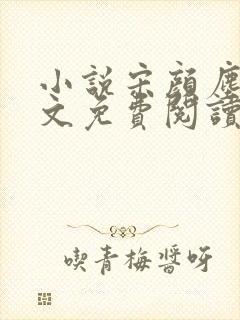 小說宋顏塵
文免費閱讀
喫青梅醬呀